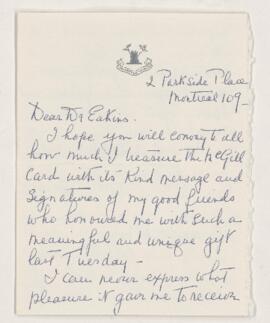 2 Parkside Place
Montreal 109-
Dear Dr Eakins.
I hope you will convey to all
how much I treasure the McGill
Card with its kind message and
Signatures of my good friends
who honoured me with such a
meaningful and unique gift
last Tuesday -
I can never express what
pleasure it gave me to receive